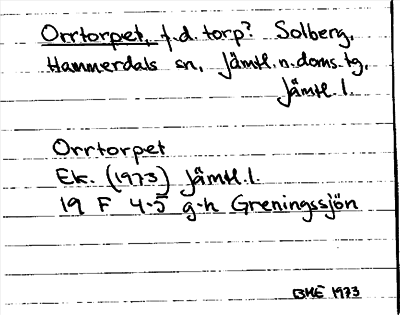 Orrtorpet, f.d. torp? Solberg,
Hammerdals sn, Jämtl.n.doms.tg,
Jämtl.l.
Orrtorpet
Ek. (1973) Jämtl.l.
19 F 4-5 g-h Greningssjön
BME 1973